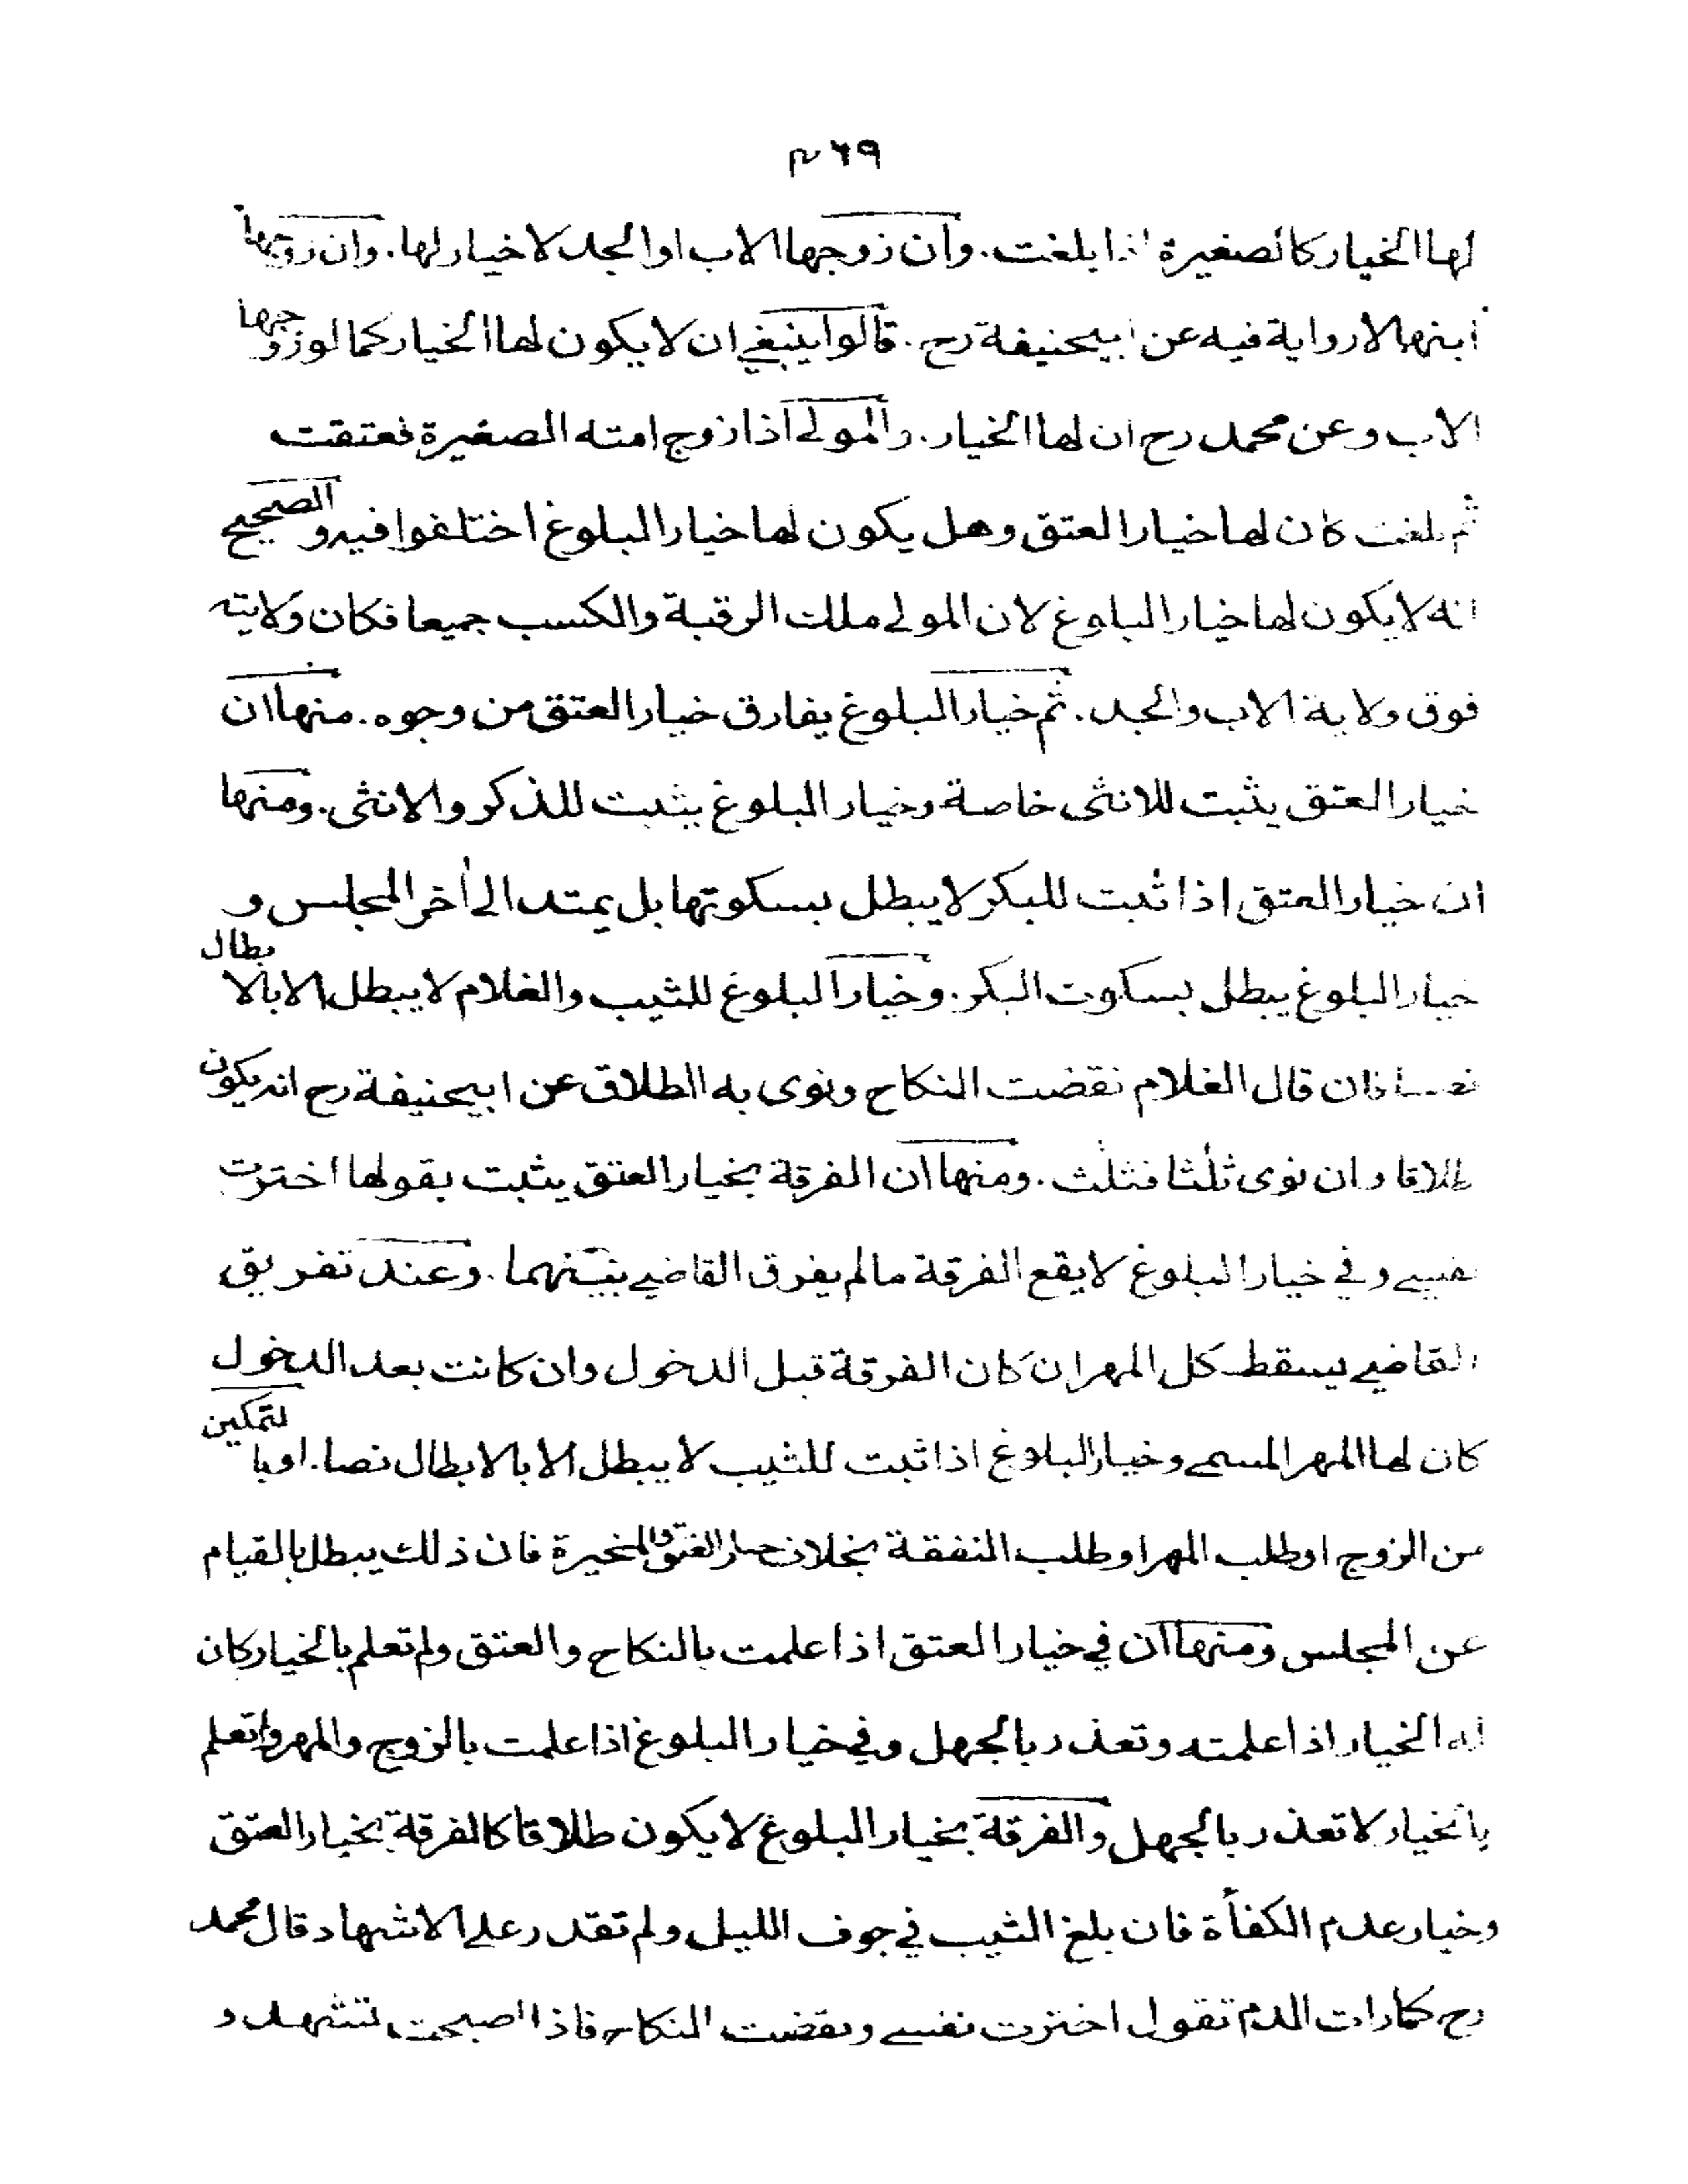 ٣٦٩
لها الخيار كالصغيرة اذا بلغت. وان زوجها الاب او الجد لا خيار لها. وان زوجها
ابنها لا رواية فيه عن ابيحنيفة رح. قالوا ينبغي ان لا يكون لها الخيار كما لو زوجها
الاب وعن محمد رح ان لها الخيار. والمولى اذا زوج امته الصغيرة فعتقت
ثم بلغت كان لها خيار العتق وهل يكون لها خيار البلوغ اختلفوا فيه والصحيح
انه لا يكون لها خيار البلوغ لان المولى ملك الرقبة والكسب جميعا فكان ولايته
فوق ولاية الاب والجد. ثم خيار البلوغ يفارق خيار العتق من وجوه. منها ان
خيار العتق يثبت للانثى خاصة وخيار البلوغ يثبت للذكر والانثى. ومنها
ان خيار العتق اذا ثبت للبكر لا يبطل بسكوتها بل يمتد الى أخر المجلس و
خيار البلوغ يبطل بسكوت البكر. وخيار البلوغ للثيب والغلام لا يبطل الا بالابطال
نصا فان قال الغلام نقضت النكاح ونوى به الطلاق عن ابيحنيفة رح انه يكون
طلاقا وان نوى ثلثا فثلث. ومنها ان الفرقة بخيار العتق يثبت بقولها اخترت
نفسي وفي خيار البلوغ لا يقع الفرقة ما لم يفرق القاضي بينهما. وعند تفريق
القاضي يسقط كل المهر ان كان الفرقة قبل الدخول وان كانت بعد الدخول
كان لها المهر المسمى وخيار البلوغ اذا ثبت للثيب لا يبطل الا بالابطال نصا. او بالتمكين
من الزوج او طلب المهر او طلب النفقة بخلاف خيار العتق والمخيرة فان ذلك يبطل بالقيام
عن المجلس ومنها ان في خيار العتق اذا علمت بالنكاح والعتق ولم تعلم بالخيار كان
له الخيار اذا علمته وتعذر بالجهل وفي خيار البلوغ اذا علمت بالزوج والمهر ولم تعلم
بالخيار لا تعذر بالجهل والفرقة بخيار البلوغ لا يكون طلاقا كالفرقة بخيار العتق
وخيار عدم الكفأة فان بلغ الثيب في جوف الليل ولم تقدر على الاشهاد قال محمد
رح كما رات الدم تقول اخترت نفسي ونقضت النكاح فاذا اصبحت تشهد و